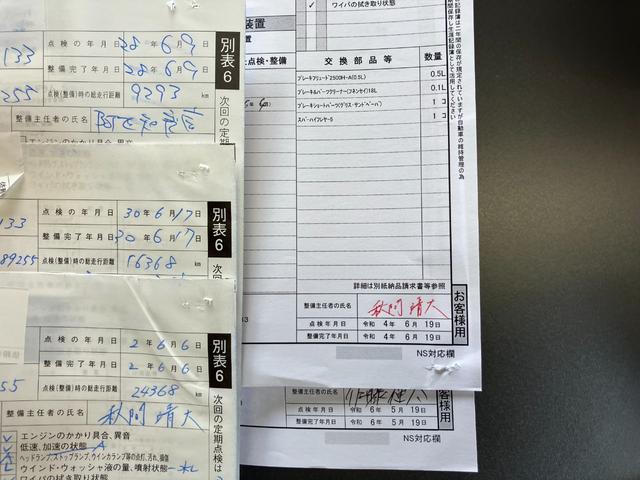 133
点検の年月日 28年6月9日
整備完了年月日 28年6月9日
255
点検(整備)時の総走行距離 9293 km
整備主任者の氏名
エンジンのかかり具合、異音
別表6
次回の定期
133
点検の年月日 30年6月17日
整備完了年月日 30年6月17日
89255
点検(整備)時の総走行距離 16368 km
別表6
次回の定
点検の年月日 2年6月6日
整備完了年月日 2年6月6日
55
点検(整備)時の総走行距離 24368 km
整備主任者の氏名 秋門 靖大
エンジンのかかり具合、異音
低速、加速の状態 A
ヘッドランプ、ストップランプ、ウインカランプ等の点灯、汚れ、損傷
ウインド・ウォッシャ液の量、噴射状態
ワイパの拭き取り状態
別表6
次回の定期点検は
✓ ワイパの拭き取り状態
装置
点検・整備 交換部品等 数量
ブレーキフリュード2500H-A(0.5L) 0.5L
ブレーキ&パーツクリーナー(フネンセイ)18L 0.1L
ブレーキショートパーツ(グリス・サンドペーパ) 1 コ
スパーハイフレヤーS 1 コ
詳細は別紙納品請求書等参照
整備主任者の氏名 秋門 靖大
点検年月日 令和 4年 6月 19日
整備完了年月日 令和 4年 6月 19日
NS対応欄
お客様用
整備主任者の氏名
点検年月日 令和 6年 5月 19日
整備完了年月日 令和 6年 5月 19日
NS対応欄
客様用